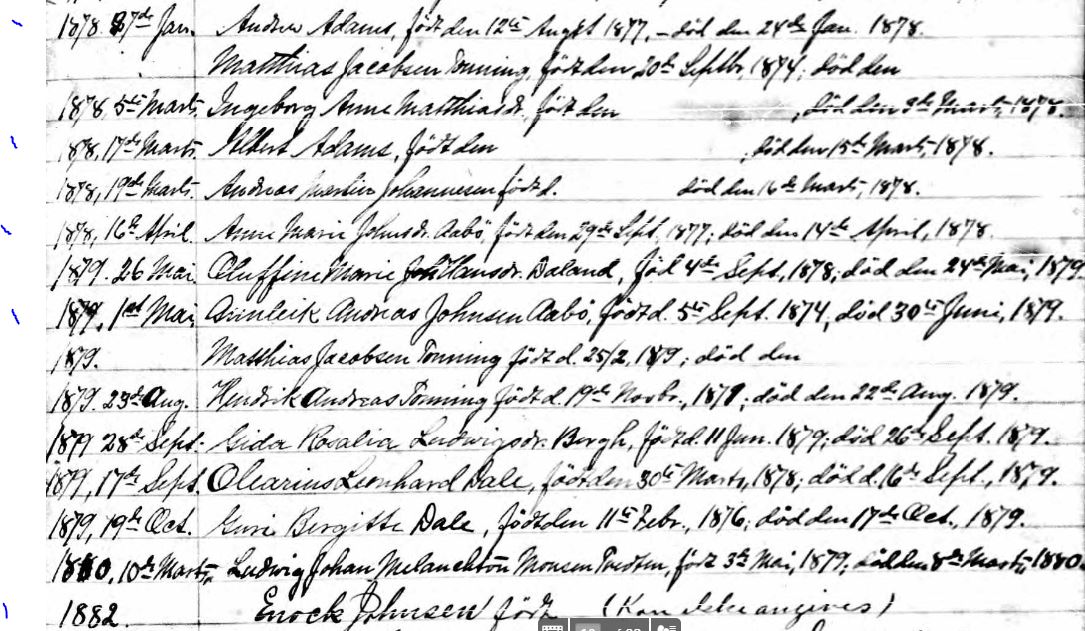 1878. 27de Jan. Andrew Adams, født den 12te Augst 1877, - död den 24de Jan. 1878.
Matthias Jacobsen Tonning, født den 20de Septbr, 1874; död den
1878 5te Marts. Ingeborg Anne Matthiasdr. født den , död den 3de Marts, 1878.
1878, 17de Marts. Albert Adams, født den , död den 15de Marts, 1878.
1878, 19de Marts. Andreas Martin Johannesen född. död den 16de Marts, 1878.
1878, 16de April. Anne Marie Johnsdr. Aabö, født den 29de Sept. 1877; död den 14de April, 1878.
1879. 26 Mai Oluffine Marie Hansdr. Daland, föd 4de Sept, 1878; död den 24de Mai, 1879.
1879, 1st Mai, Andreas Johnsen Aabö, född. 5te Sept. 1874, död 30te Juni, 1879.
1879. Matthias Jacobsen Tonning född d. 25/2, 1879; död den
1879. 23de Aug. Hendrik Andreas Tonning född d. 19de Novbr., 1871; död den 22de Aug. 1879.
1879 28de Sept. Gida Rosalia Ludwigsdr. Bergh, född d. 11 Jun. 1879; död 26de Sept. 1879.
1879, 17de Sept. Olearius Leonhard Dale, født den 30te Marts, 1878; död d. 16de Sept., 1879.
1879, 19de Oct. Guri Bergitte Dale, født den 11te Febr., 1876; död den 17de Oct., 1879.
1880, 10de Marts, Ludwig Johan Melanchton Monsen Tvedten, født 3de Mai, 1879; död den 8de Marts, 1880.
1882. Enock Johnsen født (Kan ikke angives)